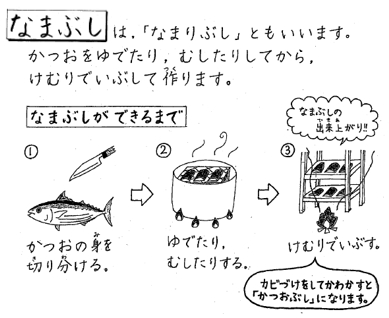 なまぶしは、「なまりぶし」ともいいます。
かつおをゆでたり，むしたりしてから，
けむりでいぶして作ります。
なまぶしができるまで
①
かつおの身を
切り分ける。
②
ゆでたり，
むしたりする。
③
なまぶしの
出来上がり!!
けむりでいぶす。
カビづけをしてかわかすと
「かつおぶし」になります。